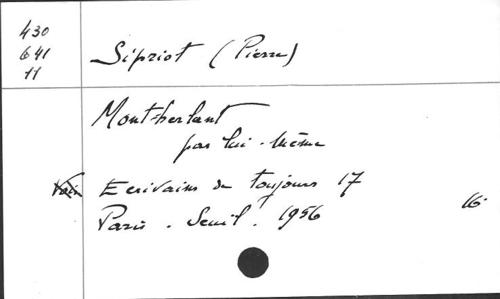 430
641
11
Sipriot (Pierre)
Montherlant
par lui-même
Voir Ecrivains de toujours 17
Paris. Seuil. 1956 16°